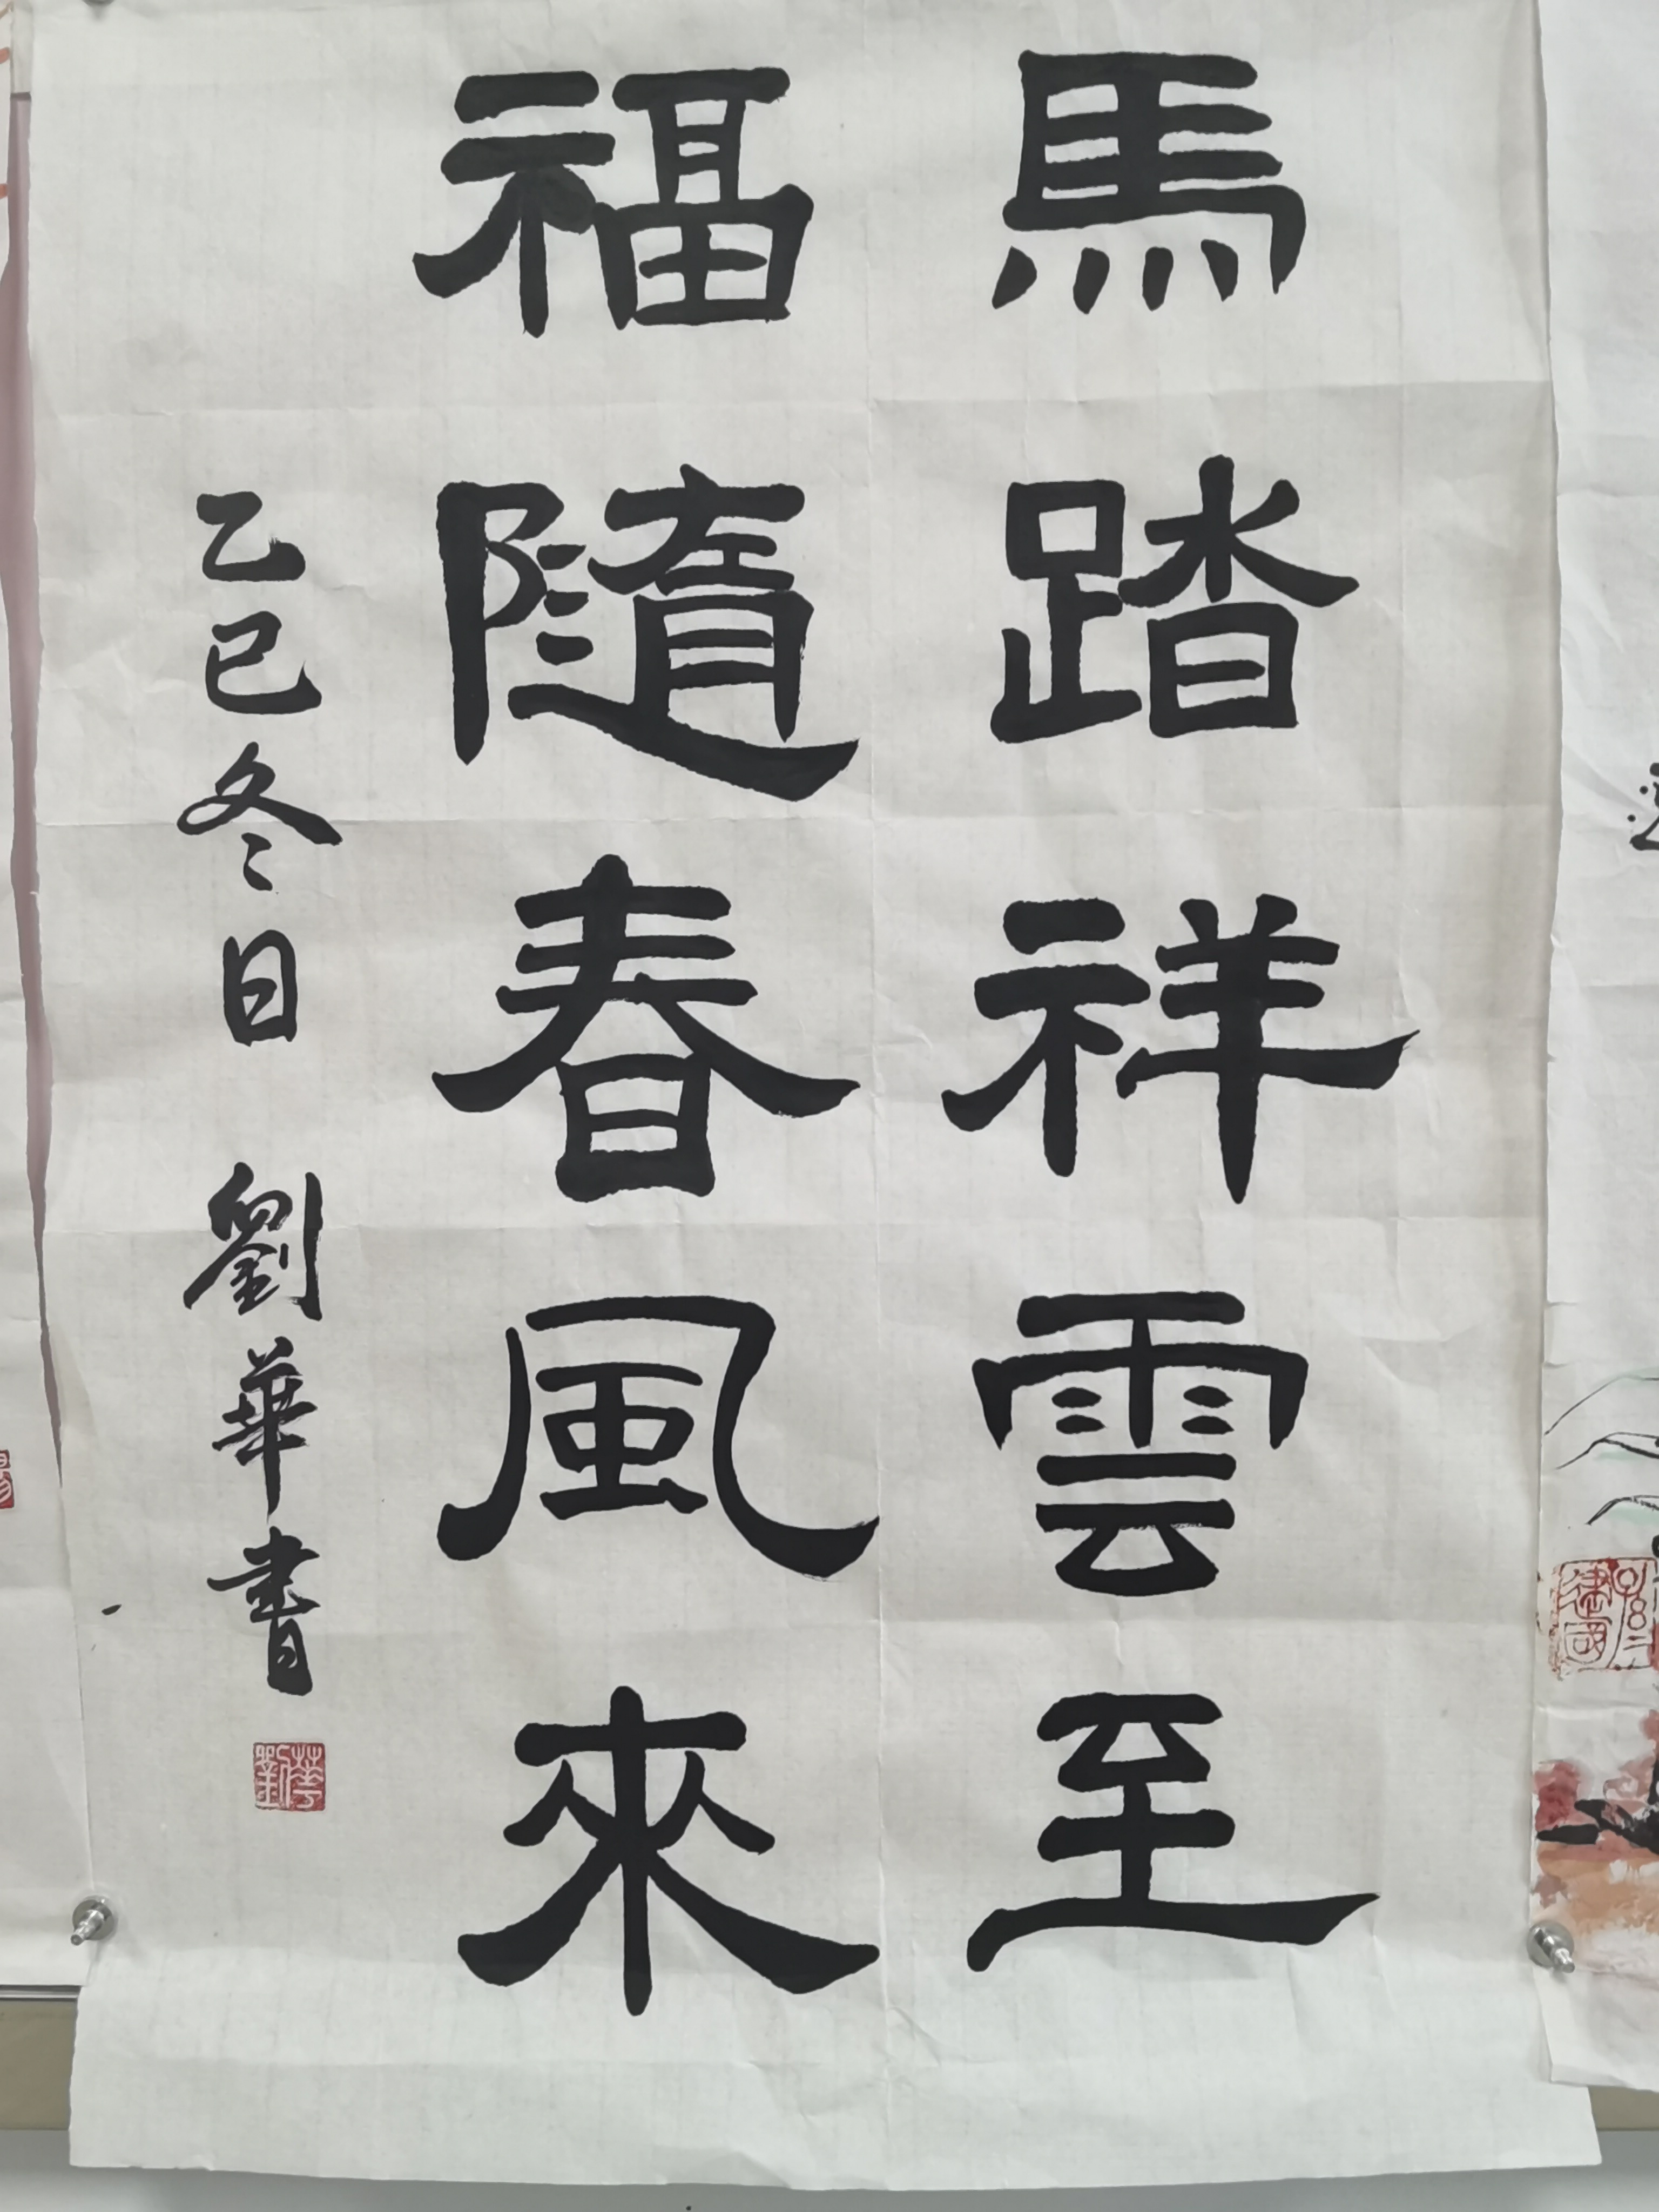 馬踏祥雲至
福隨春風來
乙巳冬日 劉華書
劉華
建國